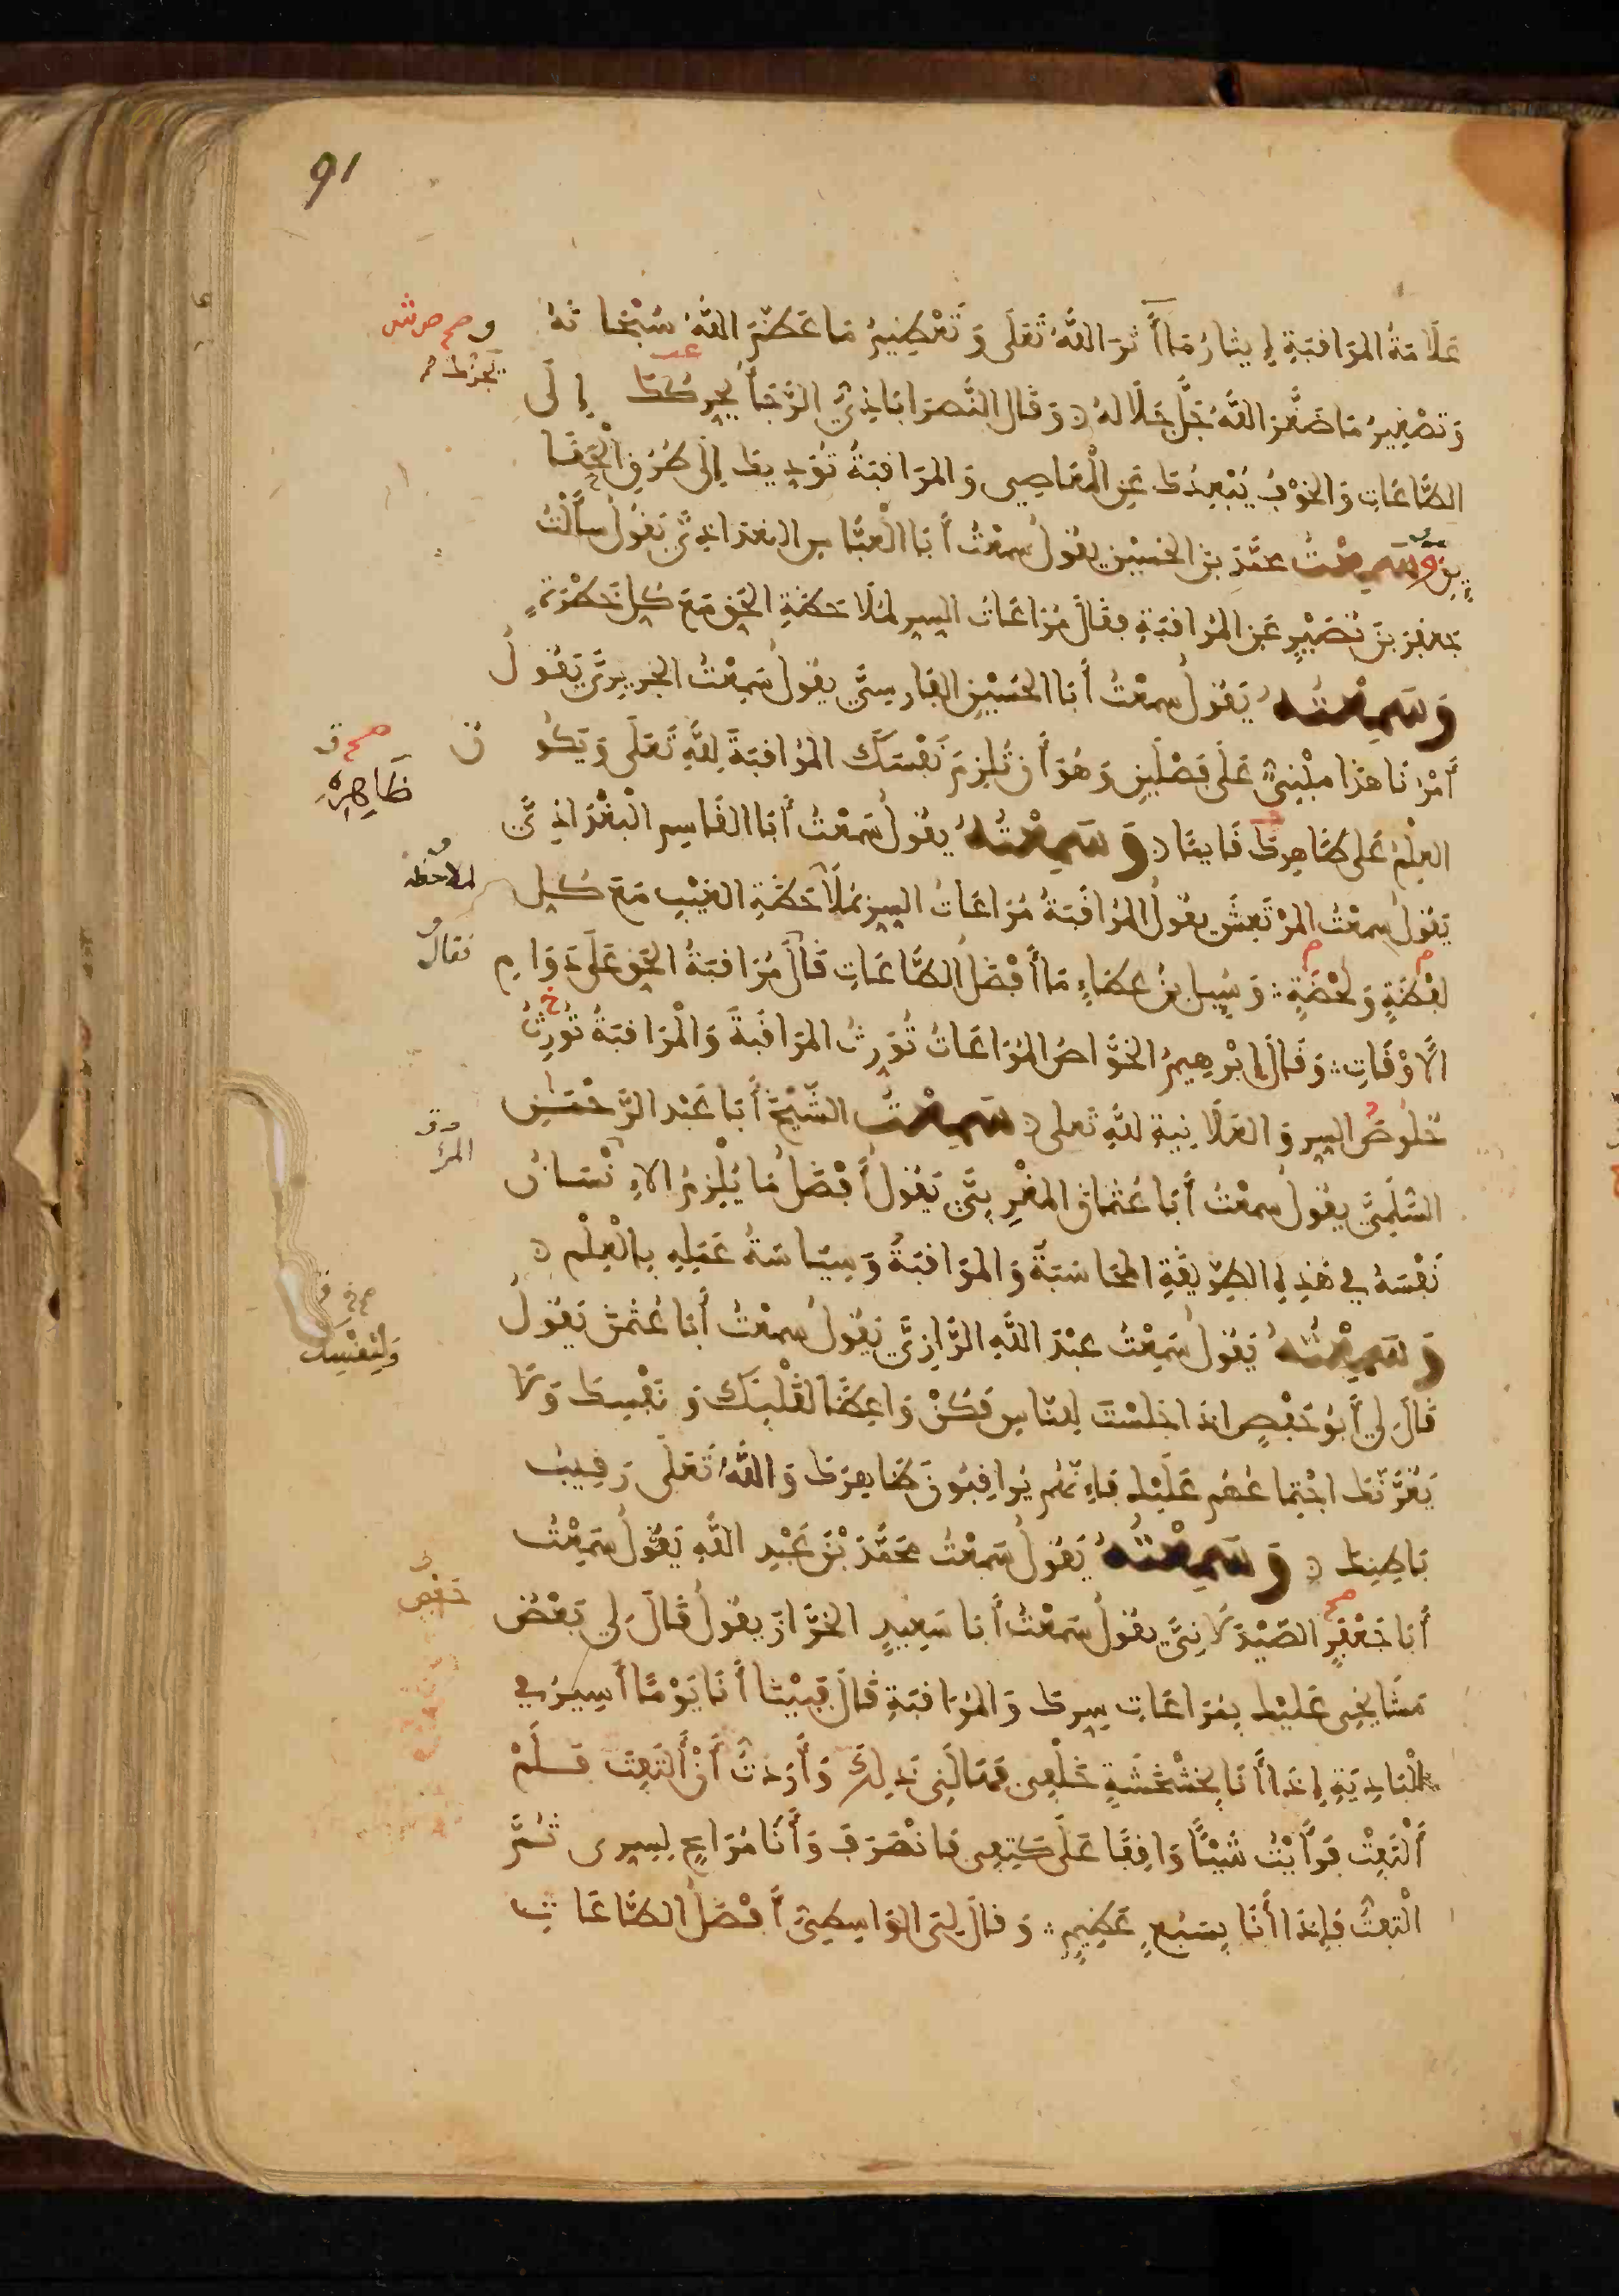 91
عَلَامَةُ المُرَاقَبَةِ إِيثَارُ مَا أَثَرَ اللَّهُ تَعَلَى وَتَعْظِيمُ مَا عَظَّمَ اللَّهُ سُبْحَانَهُ
وَتَصْغِيرُ مَا صَغَّرَ اللَّهُ جَلَّ جَلَالهُ وَقَال النَّصرَابَاذِيُّ الرَّجَأُ يُحركك إِلَى
الطَّاعَاتِ وَالخَوْفُ يُبْعِدُكَ عَنِ الْمَعَاصِي وَالمرَاقَبَةُ تُؤَدِّيكَ إِلَى طُرُقِ الْحَقَا
ـيِقِ وسَمِعْتُ محمَّدَ بْنَ الحُسَيْنِ يقُولُ سَمِعْتُ أَبَا الْعَبَّاسِ البَغدَاذِيَّ يَقُولُ سَأَلْتُ
جعفَرَ بْنَ نُصَيْرٍ عَنِ المُرَاقَبَةِ فقَالَ مُرَاعَاتُ السِّرِ لمُلَاحَظَةِ الحَقِّ مَعَ كُلِّ خَطْرَةٍ
وَسَمِعْتُهُ يَقُولُ سَمِعْتُ أَبَا الحُسَيْنِ الفَارِسيَّ يقُولُ سَمِعْتُ الجُريرِيَّ يَقُولُ
أَمْرُنَا هَذَا مبْنِيٌّ عَلَى فَصْلَيْنِ وَهُوَ أَن تُلْزِمَ نَفْسَكَ المُرَاقَبَةَ لِلَّهِ تَعَلَى وَيَكُونَ
العِلْمُ عَلَى ظَاهِرِكَ قَايمًا وَسَمِعْتُهُ يقُولُ سَمِعْتُ أَبَا القَاسِمِ الْبَغْدَاذِيَّ
يَقُولُ سَمِعْتُ المُرْتَعِشَ يقُولُ المُرَاقَبَةُ مُرَاعَاتُ السِّرِ بمُلَاحَظَةِ الغَيْبِ مَعَ كُلِّ
لفْظَةٍ وَلَحْظَةٍ وَسُيِلَ بنُ عطَاءٍ مَا أَفْضَلُ الطَّاعَاتِ قَالَ مُرَاقَبَةُ الحَقِّ عَلَى دَوَامِ
الأَوْقَاتِ وَقَالَ إِبْرَهِيمُ الخَوَّاصُ المُرَاعَاتُ تُورِثُ المرَاقَبَةَ وَالْمُرَاقَبَةُ تُورِثُ
خُلُوصَ السِّرِ وَالعَلَانِيَةِ للَّهِ تَعلى سَمِعْتُ الشَّيْخَ أَبَا عَبْدِ الرَّحْمَنِ
السُّلَمِيَّ يقُولُ سَمِعْتُ أَبَا عُثْمَانَ المَغْرِبِيَّ يَقُولُ أَفْضَلُ مَا يُلْزِمُ الإِنْسَانُ
نَفْسَهُ في هَذِهِ الطَّرِيقَةِ المُحَاسَبَةَ وَالمرَاقَبَةُ وَسِيَاسَةُ عَمَلِهِ بِالْعِلْمِ
وَسَمِعْتُهُ يَقُولُ سَمِعْتُ عبْدَ اللَّهِ الرَّازِيَّ يَقُولُ سَمِعْتُ أَبَا عُثْمَنَ يَقُولُ
قَالَ لِي أَبُو حَفْصٍ إذَا جَلَسْتَ لِلنَّاسِ فَكُنْ وَاعِظًا لقَلْبِكَ وَنَفْسِكَ وَلَا
يَغُرَّنَّكَ اجْتِمَاعُهُمْ عَلَيْكَ فَإِنَّهُم يُرَاقِبُونَ ظَاهِرَكَ وَاللَّهُ تَعَلَى رَقِيبُ
بَاطِنِكَ وَسَمِعْتُهُ يَقُولُ سَمِعْتُ محَمَّدَ بْنَ عَبْدِ اللَّهِ يَقُولُ سَمِعْتُ
أَبَا جَعْفَرٍ الصَّيْدَلَانِيَّ يقُولُ سَمِعْتُ أَبَا سَعِيدٍ الخَرَّازَ يقُولُ قَالَ لِي بَعْضُ
مَشَايِخِي عَلَيْكَ بِمُرَاعَاتِ سِرِكَ وَالمُرَاقَبَةِ قَالَ فَبَيْنَا أَنَا يَوْمًا أَسِيرُ في
الْبَادِيَةِ إِذَا أَنَا بِخَشْخَشَةٍ خَلْفِي فَهَالَنِي ذَلِكَ وَأَرَدْتُ أَنْ أَلْتَفِتَ فَلَمْ
أَلْتَفِتْ فَرَأَيْتُ شَيْئًا وَاقِفًا عَلَى كَتِفِي فَانْصَرَفَ وَأَنَا مُرَاعٍ لِسِرِي ثُمَّ
الْتَفتُّ فَإِذَا أَنَا بِسَبُعٍ عَظِيمٍ وَقالَ الوَاسِطِيُّ أَفْضَلُ الطَّاعَاتِ
ظَاهِرِهِ
لملاحظة
فقال
وَلِنَفْسِكَ
حَفْصٍ